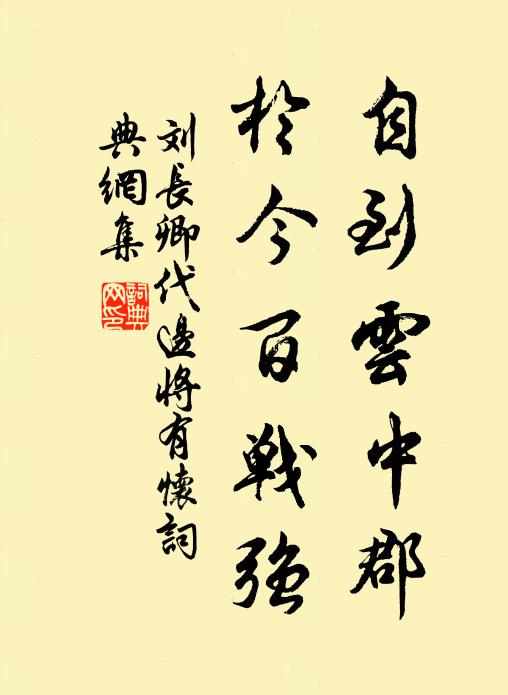 自到雲中郡
於今百戰強
刘長卿代邊將有懷詞
典網集
詞典網印